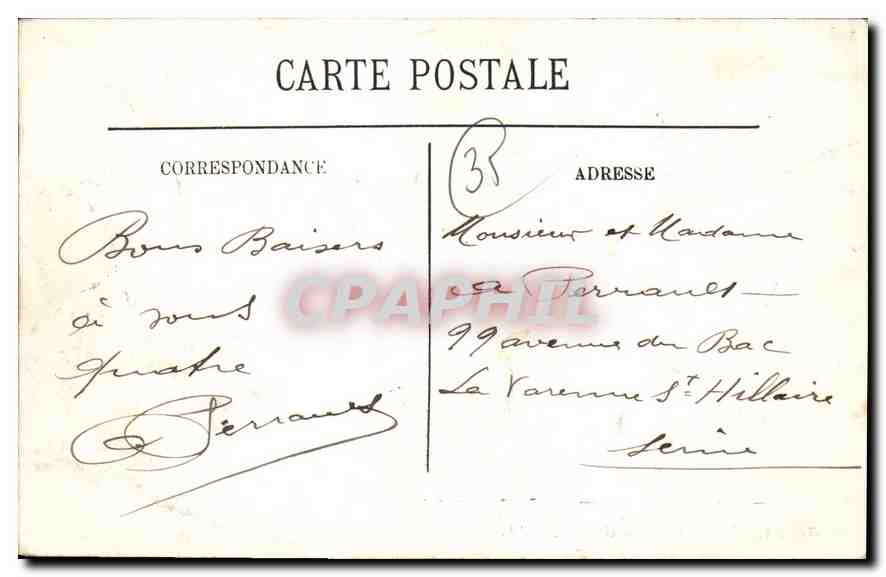 CARTE POSTALE
CORRESPONDANCE
ADRESSE
35
Bons Baisers
à vous
quatre
Perrault
Monsieur et Madame
Perrault
99 avenue du Bac
La Varenne St Hillaire
Seine
CPAPHIL